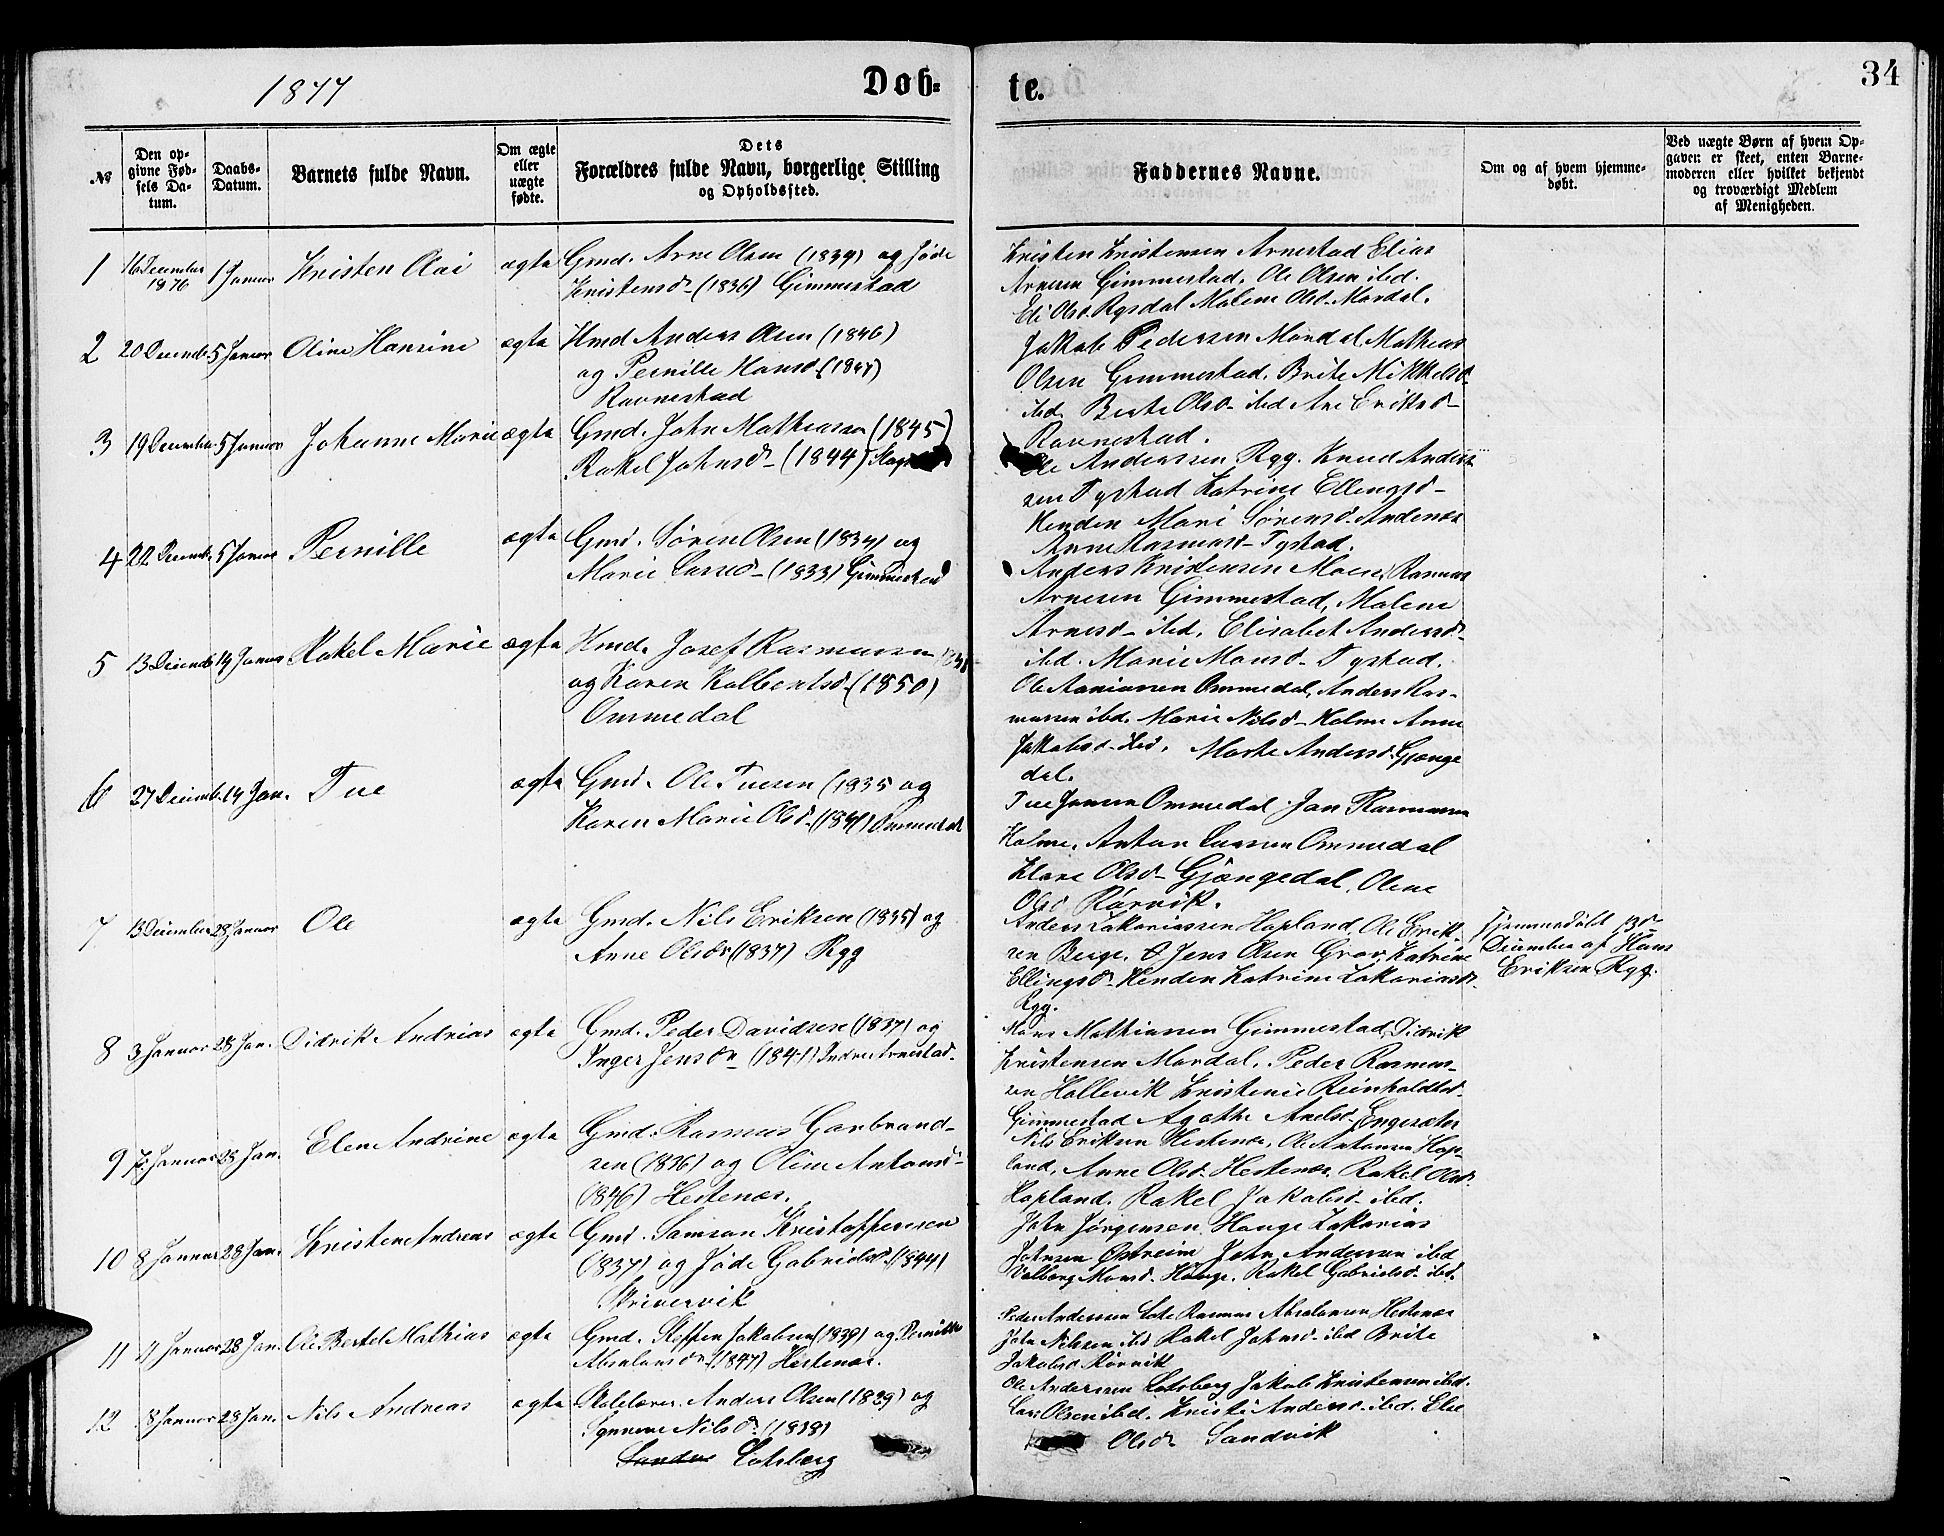 1877
Døb-
te.
34
№
Den op-
givne Fød-
sels Da-
tum.
Daabs-
Datum.
Barnets fulde Navn.
Om ægte
eller
uægte
fødte.
Dets
Forældres fulde Navn, borgerlige Stilling
og Opholdssted.
Faddernes Navne.
Om og af hvem hjemme-
døbt.
Ved uægte Børn af hvem Op-
gaven er skeet, enten Barne-
moderen eller hvilket bekjendt
og troværdigt Medlem
af Menigheden.
1
16 December
1876
1 Januar
Kristen
ægte
Gmd. Arne Olsen (1839) og Jøde
Kristensd. (1836) Gimmestad
Kristen Kristensen Arnestad Elias
Arnesen Gimmestad. Ole Olsen ibd.
Eli Olsd. Rysdal Malene Olsd. Mardal.
2
20 Decemb.
5 Januar
Oline Hansine
ægte
Hmd Anders Olsen (1846)
og Pernille Hansd. (1847)
Ravnestad
Jakob Pedersen Mardal Mathias
Olsen Gimmestad. Brite Mikkelsd.
ibd. Berte Olsd. ibd Ane Eriksd.
Ravnestad.
3
19 December
5 Januar
Johanne Marie
ægte
Gmd. John Mathiassen (1845)
Rakel Johnsd. (1844)
Ole Anderssen Ryg. Knud Anders-
sen Tystad Katrine Ellingsd.
Henden Mari Sørensd. Andenes
Anne Rasmusd. Tystad.
4
22 Decemb.
5 Januar
Pernille
ægte
Gmd. Søren Olsen (1834) og
Marie Larsd. (1833) Gimmestad
Anders Kristensen Moen, Rasmus
Arnesen Gimmestad, Malene
Arnesd. ibd. Elisabet Andersd.
ibd. Marie Monsd. Tystad.
5
13 Decemb.
14 Januar
Rakel Marie
ægte
Hmd. Josef Rasmussen
og Karen Kolbentsd. (1850)
Ommedal
Ole Ommedal, Anders Ras-
mussen ibd. Marie Nilsd. Holme Anne
Jakobsd. ibd. Marte Andersd. Gjenge
dal.
6
27 Decemb.
14 Jan.
Tue
ægte
Gmd. Ole Tuesen (1835 og
Karen Marie Olsd. (1841) Ommedal
Tue Jansen Ommedal. Jan Rasmussen
Holme. Anton Larssen Ommedal
Klara Olsd. Gjængedal, Olene
Olsd. Rørvik.
7
13 December
28 Januar
Ole
ægte
Gmd. Nils Eriksen (1835) og
Anne Olsdr. (1837) Ryg
Anders Zakariassen Hopland, Ole Erik-
sen Berge. Jens Olsen Grov, Katrine
Ellingsd. Henden Katrine Zakariasd.
Ryg.
Hjemmedøbt 13de
December af Hans
Eriksen Ryg.
8
3 Januar
28 Jan.
Didrik Andrias
ægte
Gmd. Peder Davidsen (1837) og
Inger Jensdr. (1841) Indre Arnestad.
Hans Mathiassen Gimmestad, Didrik
Kristensen Mardal. Peder Rasmus-
sen Hollevik Kristense Reinholdtsd.
Gimmestad Agathe Engesæter
9
7 Januar
28 Jan.
Elen Andrine
ægte
Gmd. Rasmus Garbrand-
sen (1836) og Oline Antonsd.
(1846) Hestenæs.
Nils Eriksen Hestenæs, Ole Antonsen Hop-
land, Anne Olsd. Hestenæs. Rakel Olsd.
Hopland. Rakel Jakobsd. ibd.
10
8 Januar
28 Jan.
Kristen Andreas
ægte
Gmd. Samson Kristoffersen
(1837) og Jøde Gabrielsd. (1844)
Skrivervik
John Jørgensen Hauge Zakarias
Johnsen Østreim John Andersen ibd.
Valborg Monsd. Hauge. Rakel Gabrielsd. ibd.
11
11 Januar
28 Jan.
Ole Bertel Mathias
ægte
Gmd. Steffen Jakobsen (1839) og Pernille
Absalonsdr. (1847) Hestenæs.
Peder Anderssen Lote Rasmus Absalonsen Hestenæs
John Nilssen ibd Rakel Johnsd. ibd Brite
Jakobsd Rørvik
12
8 Januar
28 Jan.
Nils Andreas
ægte
Skolelærer Anders Olsen (1839) og
Synneve Nilsd. (1838)
Lotsberg
Ole Anderssen Lotsberg Jakob Kristensen ibd.
Lars Olsen ibd. Kristi Andersd. ibd. Else
Olsd. Sandvik